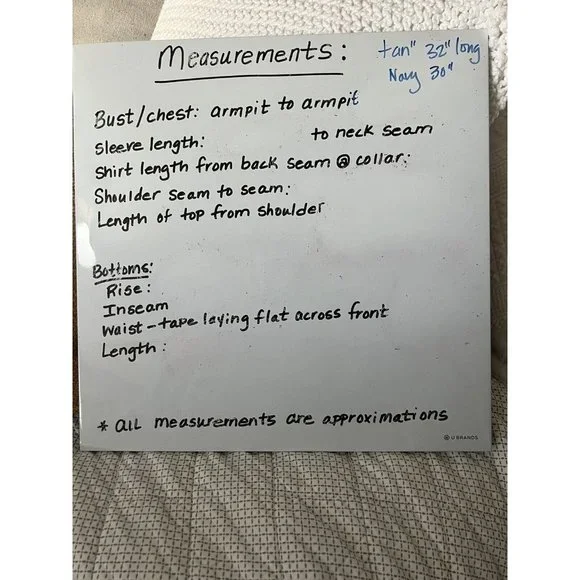 Measurements:
tan" 32" long
Navy 30"
Bust/chest: armpit to armpit
Sleeve length: to neck seam
Shirt length from back seam @ collar:
Shoulder seam to seam:
Length of top from shoulder
Bottoms:
Rise:
Inseam
Waist-tape laying flat across front
Length:
* all measurements are approximations
U BRANDS